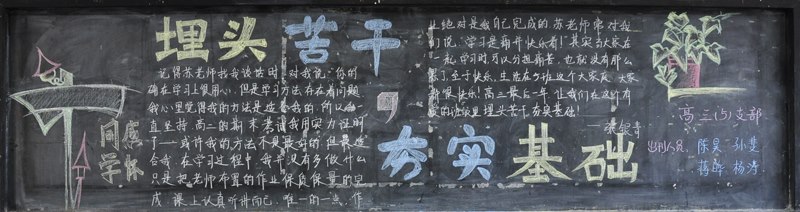 埋头苦干，
夯实基础
同感
学怀
记得苏老师找我谈话时，对我说“你的
确在学习上很用心，但是学习方法存在着问题
我心里觉得我的方法是适合我的，所以会一
直坚持，高一的期末考试我用实力证明
了——或许我的方法不是最好的，但最适
合我。在学习过程中，我并没有多做什么
只是把老师布置的作业保质保量的完
成，课上认真听讲而已。唯一的一点，作
业绝对是我自己完成的。苏老师常对我
们说：学习是痛并快乐着！其实当大家在
一起学习时可以分担痛苦，也就没有那么
累了。至于快乐，生活在5班这个大家庭，大家
都很快乐！高三最后一年，让我们在这个有
爱的班级里埋头苦干夯实基础！
高三(5)支部
出刊人员：陈昊 孙斐
蒋晔 杨涛